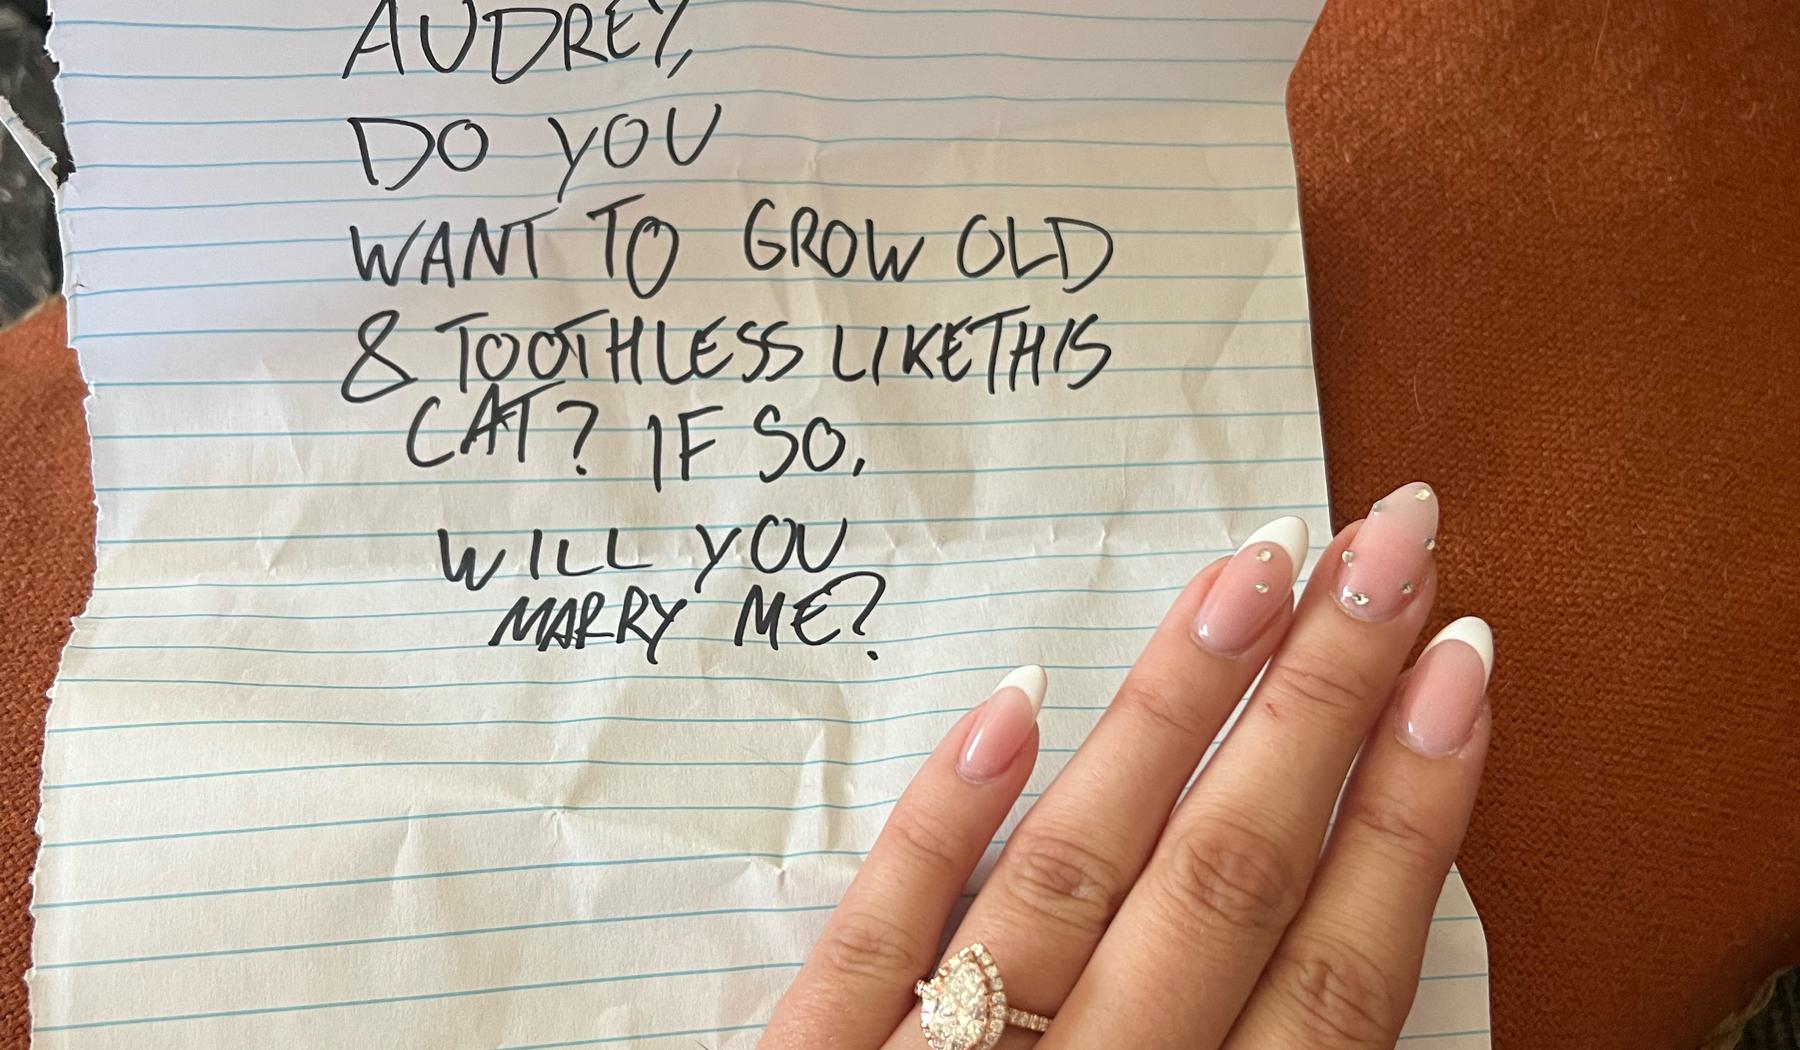 AUDREY,
DO YOU
WANT TO GROW OLD
& TOOTHLESS LIKE THIS
CAT? IF SO,
WILL YOU
MARRY ME?